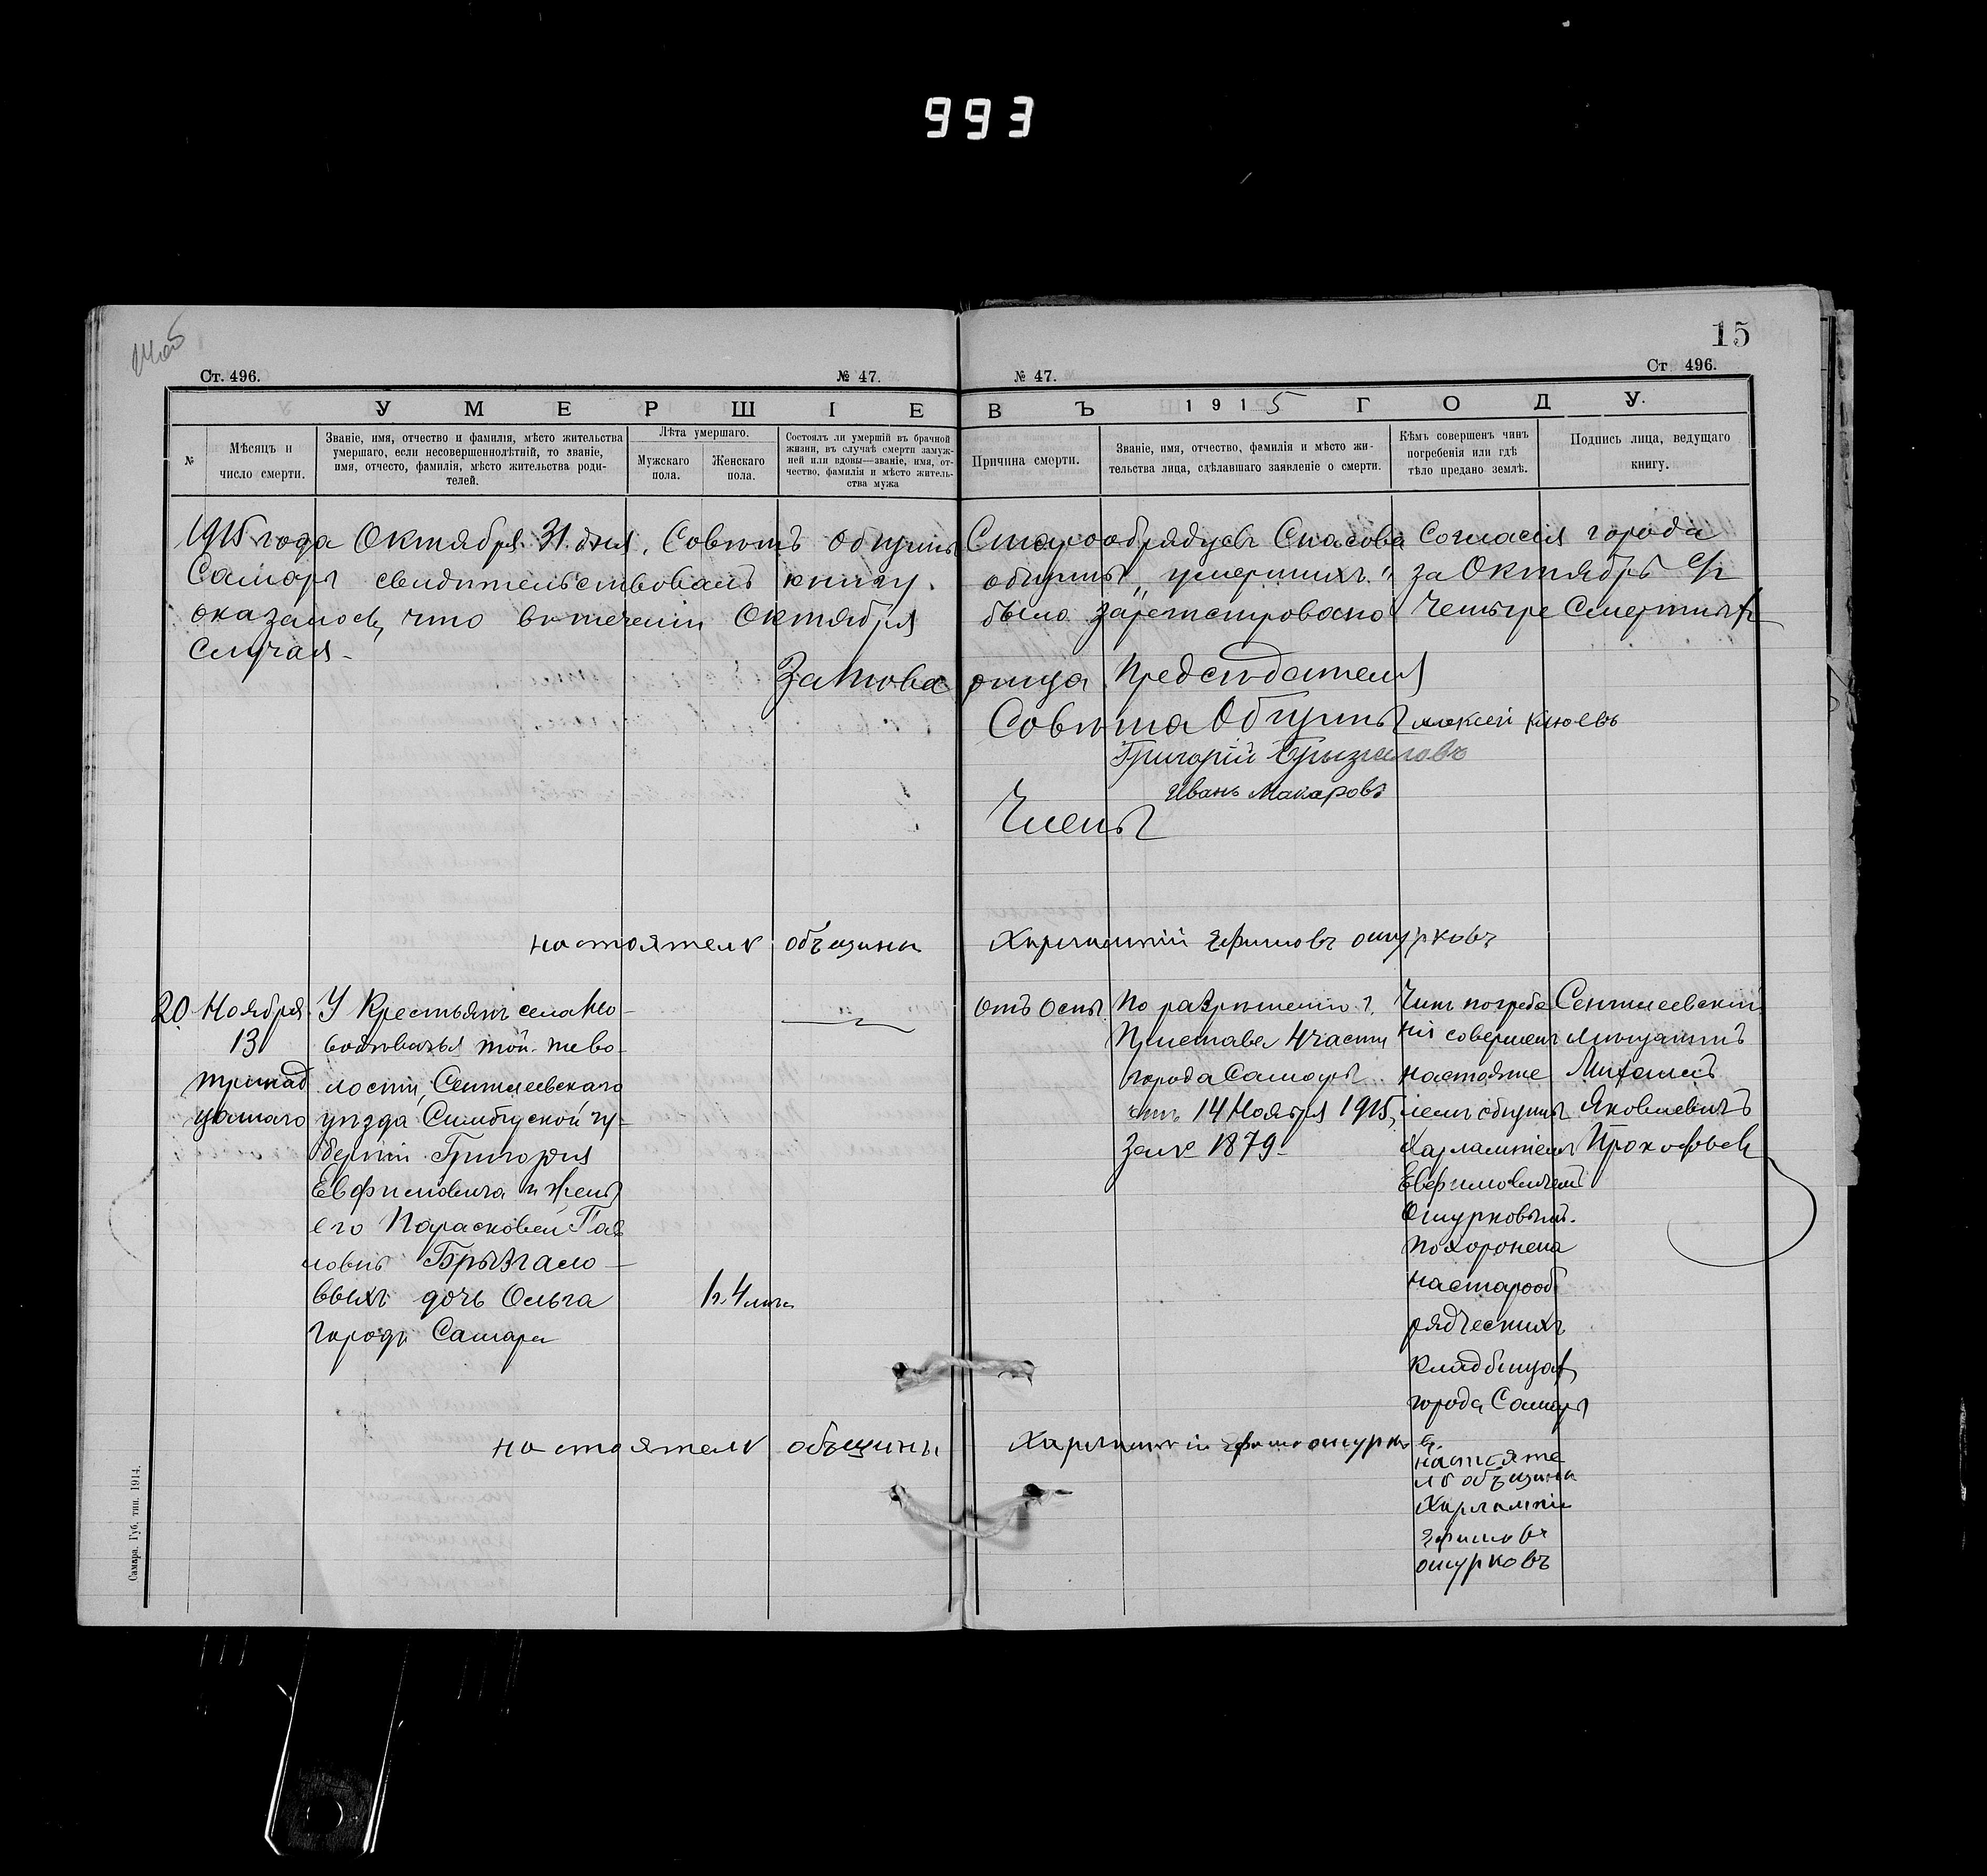 993
15
Ст. 496.
№ 47.
№ 47.
Ст. 496.
УМЕРШІЕ
ВЪ 1915 ГОДУ.
№
Мѣсяцъ и
число смерти.
Званіе, имя, отчество и фамилія, мѣсто жительства
умершаго, если несовершеннолѣтній, то званіе,
имя, отчесто, фамилія, мѣсто жительства роди-
телей.
Лѣта умершаго.
Мужскаго
пола.
Женскаго
пола.
Состоялъ ли умершій въ брачной
жизни, въ случаѣ смерти замуж-
ней или вдовы—званіе, имя, от-
чество, фамилія и мѣсто житель-
ства мужа
Причина смерти.
Званіе, имя, отчество, фамилія и мѣсто жи-
тельства лица, сдѣлавшаго заявленіе о смерти.
Кѣмъ совершенъ чинъ
погребенія или гдѣ
тѣло предано землѣ.
Подпись лица, ведущаго
книгу.
1915 года Октября 31 дня. Совѣтъ общины Старообрядцевъ Спасова Согласія города
Самары свидѣтельствовалъ книгу общины „умершихъ" за Октябрь с/г
оказалось, что въ теченіи Октября было зарегистровано Четыре Смертныхъ
Случая -
За Товарища Предсѣдателя
Совѣта Общины Алексей Клюевъ
Григорій Брызгаловъ
Иванъ Макаровъ
Члены
настоятель общины Харлампий Ефимовъ ошурковъ
20
Ноября
13
тринад
цатаго
У Крестьянъ села Но-
той-же во-
лости, Сенгилеевскаго
уѣзда Симбирской гу-
берніи Григорія
Евфимовича и жены
его Парасковеи Пав
ловны Брызгало-
выхъ дочь Ольга
городъ Самара
1 г. 4 мѣс.
отъ Оспы
По разрѣшенію г.
Пристава 4 части
города Самары
отъ 14 Ноября 1915,
за № 1879-
Чинъ погребе
нія совершенъ
настояте
лемъ общины
Харлампіемъ
Евфимовичемъ
Ошурковымъ.
похоронена
на старооб
рядческихъ
кладбищахъ
города Самары
Сенгилеевскій
мѣщанинъ
Михаилъ
Яковлевичъ
Прокофьев
настоятель общины Харлампий Ефимов ошурков
настояте
ль общины
Харлампии
Ефимовъ
ошурковъ
Самара. Губ. тип. 1914.